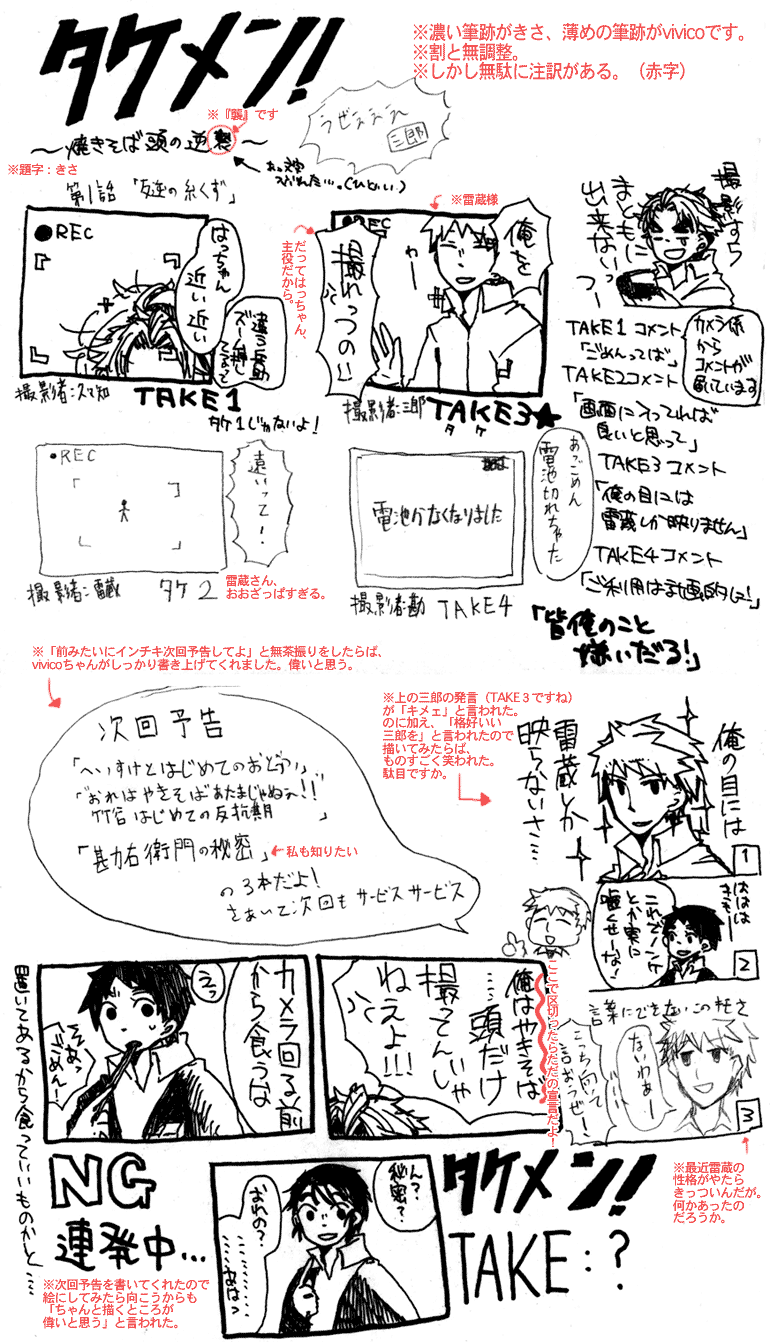 タケメン!!
※濃い筆跡がきさ、薄めの筆跡がvivicoです。
※割と無調整。
※しかし無駄に注訳がある。（赤字）
うぜぇぇぇぇ
三郎
※『襲』です
～焼きそば頭の逆襲～
※題字：きさ
第1話「反逆の糸くず」
●REC
はっちゃん
近い近い
違う長助
撮影者:久々知
TAKE1
タケ1じゃねいよ!
※雷蔵様
●REC
俺を
撮れっつの!!
だってはっちゃん、
主役だから。
撮影者:三郎
TAKE3★
タケ
撮影すら
まともに
出来ないっつー
カメラ係
から
コメントが
届いています
TAKE1コメント
「ごめんってば」
TAKE2コメント
「画面に入ってれば
良いと思って」
TAKE3コメント
「俺の目には
雷蔵しか映りません」
TAKE4コメント
「ご利用は計画的に!」
●REC
遠いって!
撮影者:雷蔵
タケ2
雷蔵さん、
おおざっぱすぎる。
電池がなくなりました
あっごめん
電池切れちゃった
撮影者:勘
TAKE4
「皆俺のこと
嫌いだろ!」
※「前みたいにインチキ次回予告してよ」と無茶振りをしたらば、
vivicoちゃんがしっかり書き上げてくれました。偉いと思う。
次回予告
「へいすけとはじめてのおとうふ」
「おれはやきそばあたまじゃねぇ!!
竹谷はじめての反抗期」
「勘右衛門の秘密」
←私も知りたい
の3本だよ!
さぁいて次回もサービスサービス
※上の三郎の発言（TAKE３ですね）
が「キメェ」と言われた。
のに加え、「格好いい
三郎を」と言われたので
描いてみたらば、
ものすごく笑われた。
駄目ですか。
俺の目には
雷蔵しか
映らないさ…
1
これでノンケ
とか実に
嘘くせーな!
2
言葉にできないこの
ないわぁー
こっち向いて
言おうぜ!
3
※最近雷蔵の
性格がやたら
きっついんだが。
何かあったの
だろうか。
俺はやきそば
……頭だけ
撮ってんじゃ
ねえよ!!!
ここで区切ったらただの宣言だよ！
カメラ回る前
から食うな
えっ
そあっ
ごめん!
置いてあるから食っていいものかと…
NG
連発中…
ん?
秘密?
おれの?
タケメン!!
TAKE:?
※次回予告を書いてくれたので
絵にしてみたら向こうからも
「ちゃんと描くところが
偉いと思う」と言われた。